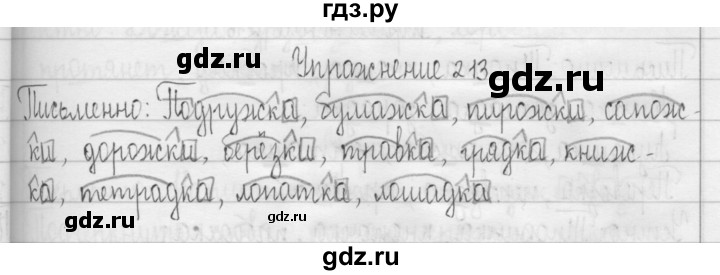 гдз.ру
gdz.ru
gdz.ru
Упражнение 213
Письменно: Подружка, бумажка, пирожки, сапож-
ки, дорожки, берёзки, травка, грядка, книж-
ка, тетрадка, лопатка, лошадка.
gdz.ru
gdz.ru
гдз.ру